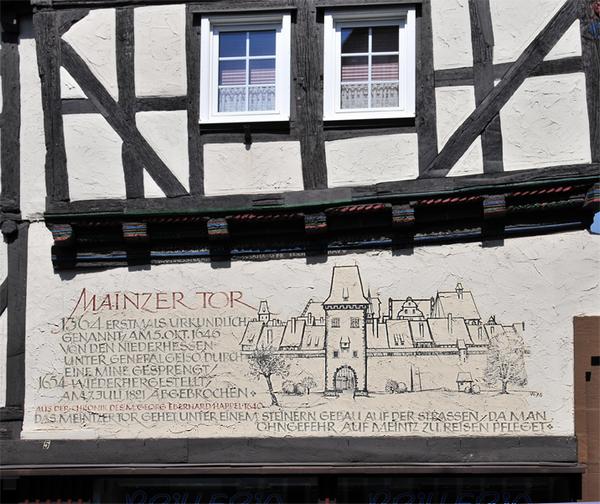 MAINZER TOR
1364 ERSTMALS URKUNDLICH
GENANNT/AM 5.OKT.1646
VON DEN NIEDERHESSEN
UNTER GENERAL GEISO DURCH
EINE MINE GESPRENGT/
1654 WIEDERHERGESTELLT/
AM 7.JULI 1821 ABGEBROCHEN
AUS DER CHRONIK DES M. GEORG EBERHARD HAPPEL 1640
DAS MEINTZER TOR GEHET UNTER EINEM STEINERN GEBAU AUF DER STRASSEN/DA MAN
OHNGEFEHR AUF MEINTZ ZU REISEN PFLEGET
5